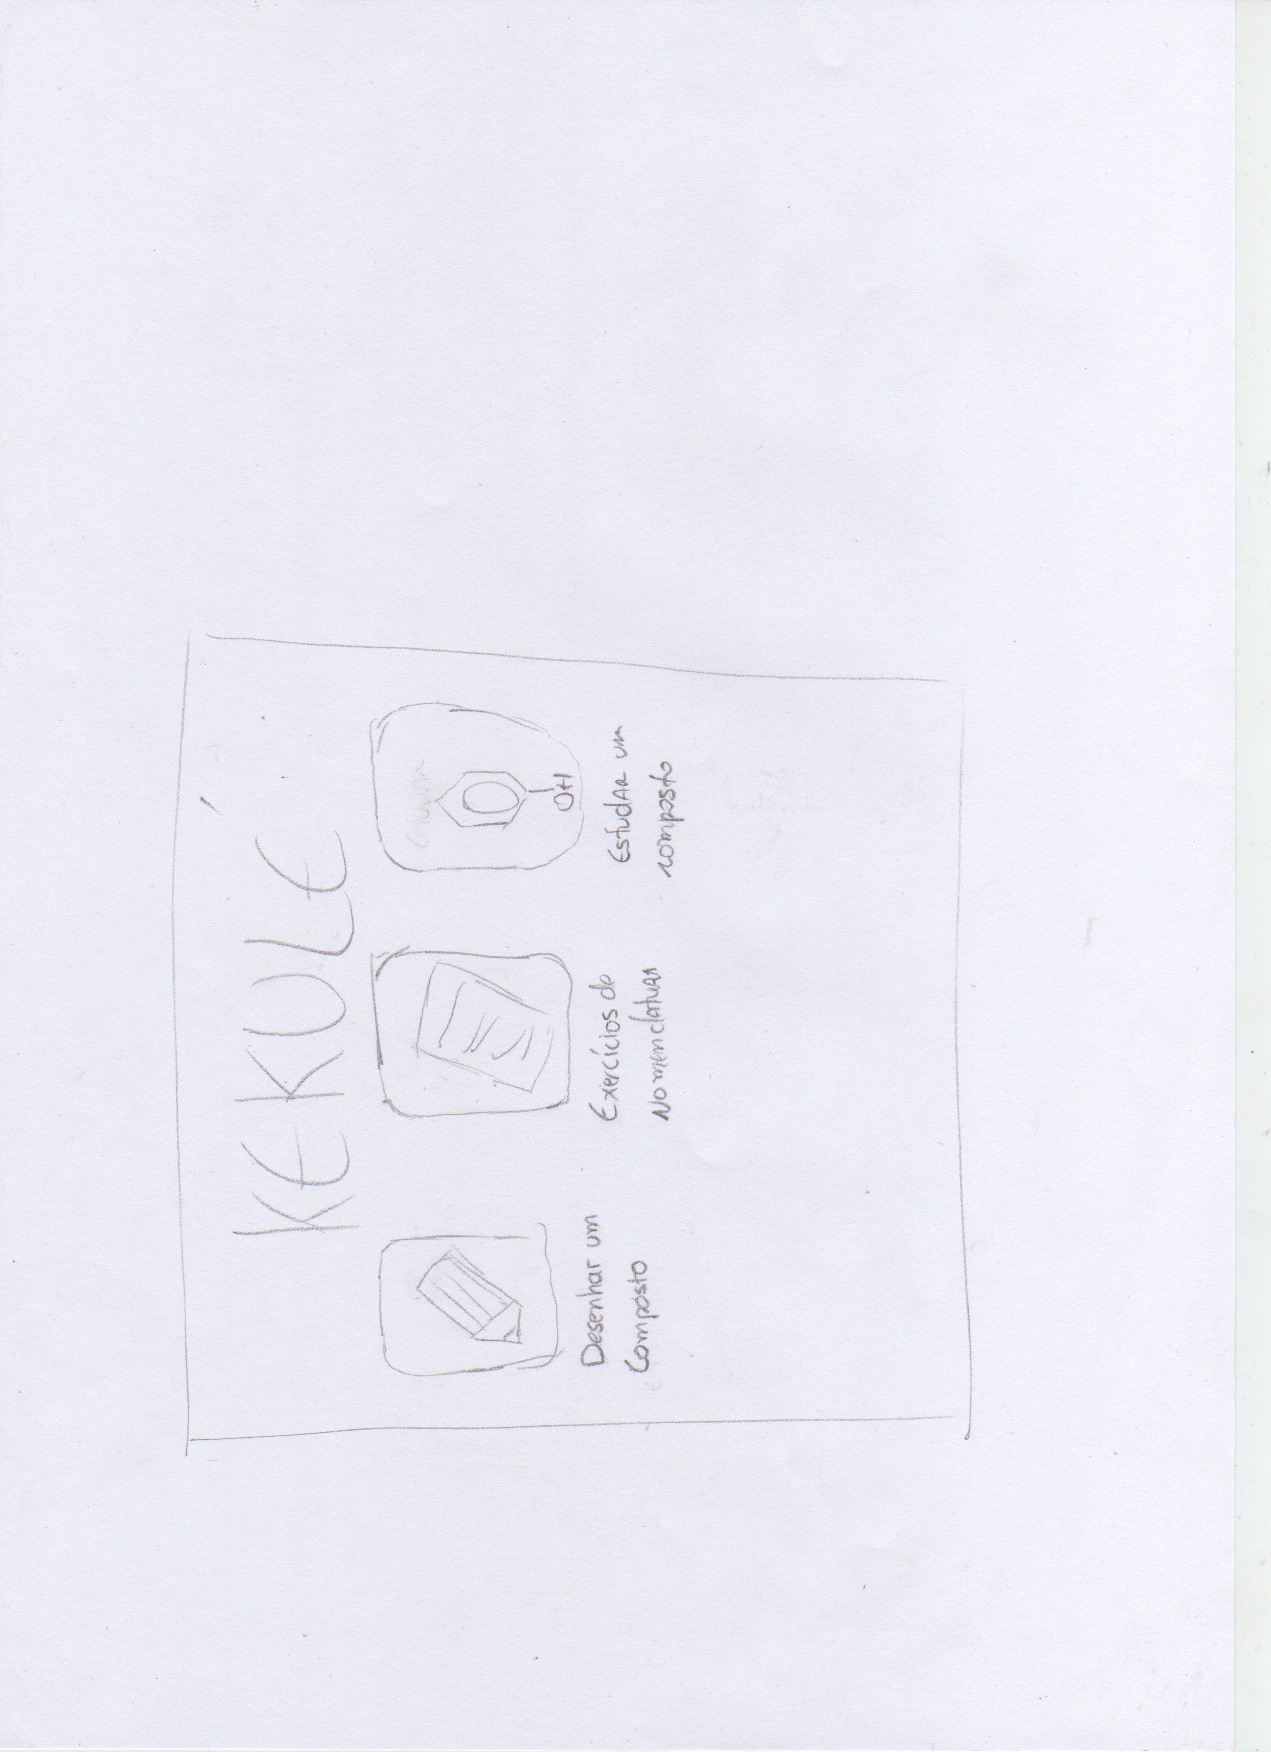 KEKULÉ
OH
Desenhar um
Composto
Exercícios de
Nomenclatura
EstudAR um
composto